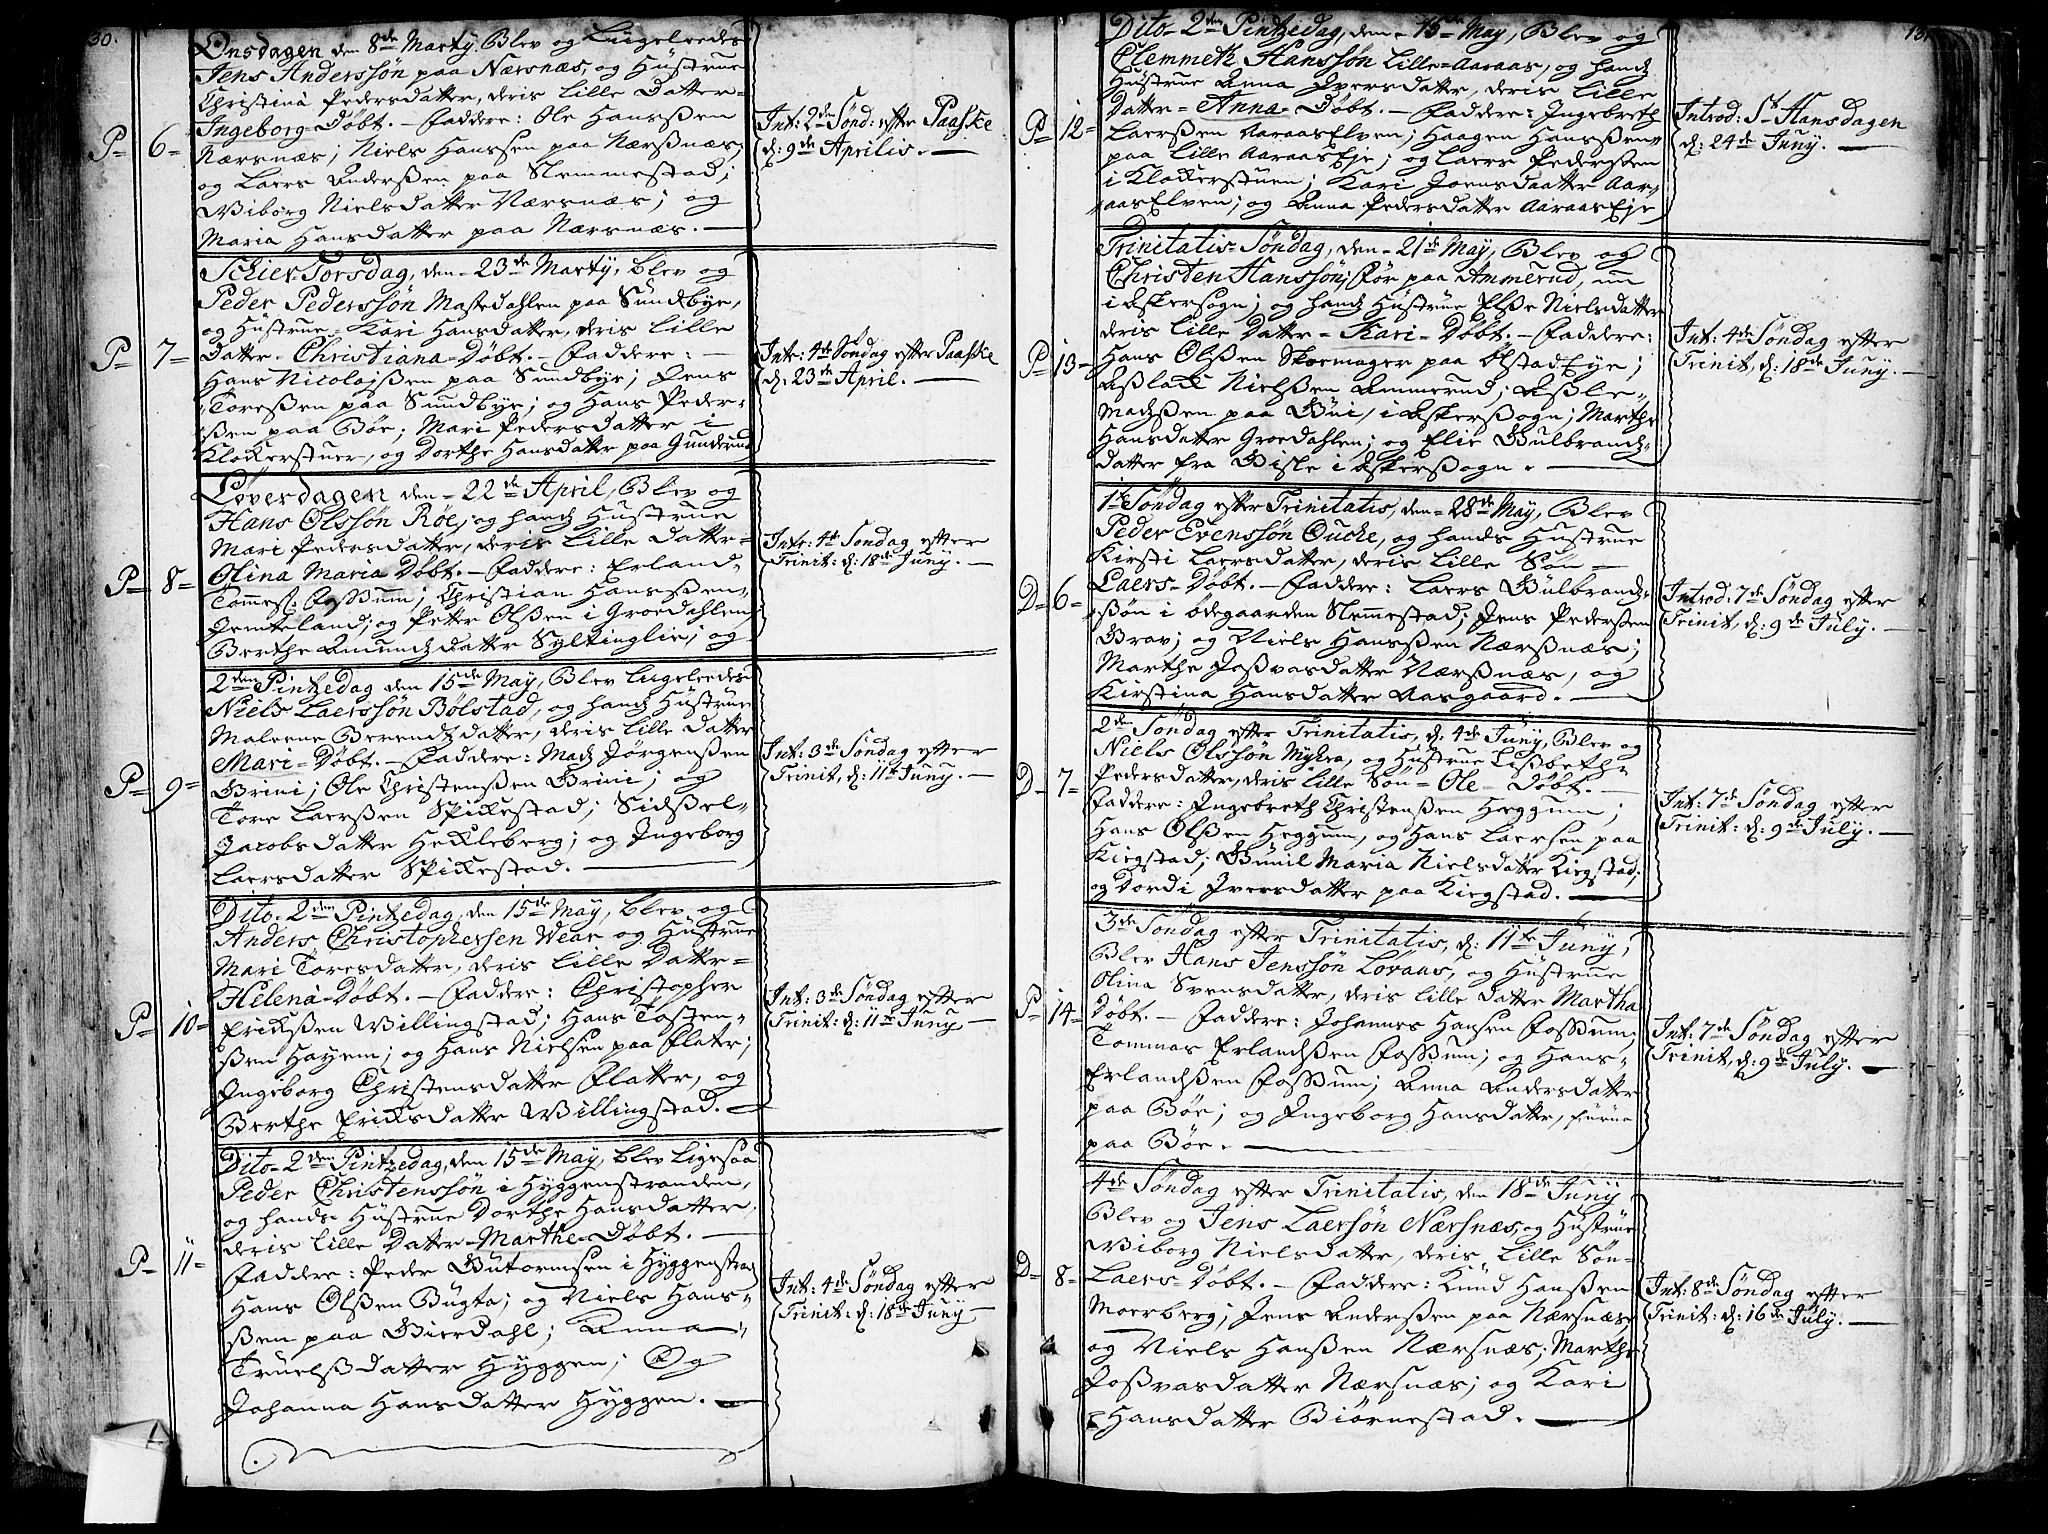 30.
Onsdagen den 8de Marty Blev og Ligeleedes
Jens Anderssøn paa Nærsnæs, og Hustrue
Christina Pedersdatter, deris Lille Datter=
Ingeborg=Døbt. — Faddere: Ole Hansßen
P= 6=
Nærsnæs; Niels Hanssen paa Nærßnæs;
og Laers Anderßen paa Slemmestad;
Wiborg Nielsdatter Nærsnæs; og
Maria Hansdatter paa Nærsnæs. —
Int: 2den Sønd: efter Paaske
d: 9de Aprilis. —
Schier Torsdag, den 23de Marty, blev og
Peder Pederssøn Mastedahlen paa Sundbye,
og Hustrue= Kari Hansdatter, deris Lille
P= 7=
Datter= Christiana=Døbt. — Faddere: —
Hans Nicolajßen paa Sundbye; Jens
Toreßen paa Sundbye; og Hans Peder=
ßen paa Bøe; Mari Pedersdatter i
Klockerstuen, og Dorthe Hansdatter paa Gunderud
Intr: 4de Søndag efter Paaske
d: 23de April. —
Løverdagen den= 22de April, Blev og
Hans Olssøn Røe, og hands Hustrue
Mari Pedersdatter, deris Lille Datter=
P= 8=
Olina Maria Døbt. — Faddere: Erland=
Tommes: Foßum; Christian Hansßen=
Jemteland; og Petter Olßen i Groedahlen;
Berthe Amundsdatter Syltinglie; og
Intr: 4de Søndag efter
Trinit: d: 18de Juny. —
2den Pintzedag den 15de May, Blev Ligeleedes
Niels Laerssøn Bølstad, og hands Hustrue
Maleene Berendtzdatter, deris Lille Datter
Mari=Døbt. — Faddere: Mads Jørgenßen
P= 9=
Brini; Ole Christenßen Brini; og
Tore Laersßen Spikestad; Sidßel=
Jacobsdatter Hekleberg; og Ingeborg
Laersdatter Spikestad. —
Int: 3de Søndag efter
Trinit, d: 11te Juny. —
Dito= 2den Pintzedag, den 15de May, blev og
Anders Christopherssen Wear og Hustrue
Mari Toresdatter, deris Lille Datter=
Helena=Døbt. — Faddere: Christopher
P= 10=
Erikßen Willingstad; Hans Tosten=
ßen Hayem; og Hans Nielsen paa Flate;
Ingeborg Christensdatter Flatte, og
Berthe Eriksdatter Willingstad. —
Int: 3de Søndag efter
Trinit: d: 11te Juny —
Dito= 2den Pintzedag, den 15de May, blev Ligesaa
Peder Christenssøn i Hyggenstranden,
og hands Hustrue Dorthe Hansdatter,
deris Lille Datter=Marthe=Døbt. —
P= 11=
Faddere: Peder Gutormsen i Hyggenstrand
Hans Olßen Bugta; og Niels Hans=
ßen paa Gierdahl; Anna=
Truelsdatter Hyggen; Og
Johanna Hansdatter Hyggen. —
Int: 4de Søndag efter
Trinit: d: 18de Juny —
131
Dito= 2den Pintzedag, den= 15de May, Blev og
Clemmeth Hanssøn Lille=Aaraas, og hands
Hustrue Anna Iversdatter, deris Lille
Datter= Anna= Døbt. — Faddere: Ingebreth
P= 12=
Laersßen AaraasElven; Haagen Hansßen
paa Lille AaraasEje; og Laers Pedersßen
i Klockerstuen; Kari Joensdaatter Aar=
aasElven; og Anna Pedersdatter AaraasEje
Introd: St Hansdagen
d: 24de Juny. —
Trinitatis=Søndag, den= 21de May, Blev og
Christen Hanssøn, før paa Ammerud, nu
i Askersogn; og hands Hustrue Elße Nielsdatter
deris Lille Datter= Kari= Døbt. — Faddere:
P= 13=
Hans Olßen Skoemager paa BølstadEye;
Aßlak Nielsßen Ammerud; Aßle=
Madsßen paa Bui, i Askersogn; Marthe
Hansdatter Groedahlen; og Elie Gulbrands=
datter fra Biste i Askersßogn. —
Int: 4de Søndag efter
Trinit, d: 18de Juny. —
1te Søndag efter Trinitatis, den= 28de May, Blev
Peder Evenssøn Oucke, og hands Hustrue
Kirsti Laersdatter, deris Lille Søn=
D= 6=
Laers= Døbt. — Faddere: Laers Gulbrands=
ßøn i ødegaarden Slemmestad; Jens Pedersßen
Grav; og Niels Hansßen Nærßnæs;
Marthe Joßvasdatter Nærßnæs, og
Kirstina Hansdatter Aasgaard. —
Introd: 7de Søndag efter
Trinit, d: 9de July. —
2den Søndag efter Trinitatis, d: 4de Juny, Blev og
Niels Olssøn Myhra, og Hustrue Lißbeth=
D= 7=
Pedersdatter, deris Lille Søn= Ole= Døbt. —
Faddere: Ingebreth Christenßen Heggum;
Hans Olßen Heggum, og Hans Laersen paa
Kiegstad; Gunil Maria Nielsdatter Kiegstad;
og Dordi Iversdatter paa Kiegstad. —
Int: 7de Søndag efter
Trinit: d: 9de July. —
3de Søndag efter Trinitatis, d: 11te Juny,
Blev Hans Jenssøn Løvaas, og Hustrue
Olina Svensdatter, deris Lille Datter Martha
P= 14=
Døbt. — Faddere: Johannes Hansen Foßum;
Tommas Erlandßen Foßum; og Hans=
Erlandßen Foßum; Anna Andersdatter
paa Bøe; og Ingeborg Hansdatter,
paa Bøe. —
Int: 7de Søndag efter
Trinit, d: 9de July. —
4de Søndag efter Trinitatis, den 18de Juny
Blev og Jens Laersøn Nærsnæs, og Hustrue
Wiborg Nielsdatter, deris Lille Søn=
D= 8=
Laers= Døbt. — Faddere: Knud Hansßen
Moerberg; Jens Anderßen paa Nærsnæs
og Niels Hansßen Nærsnæs; Marthe
Joßvasdatter Nærsnæs; og Kari
Hansdatter Biørnestad. —
Int: 8de Søndag efter
Trinit: d: 16de July. —